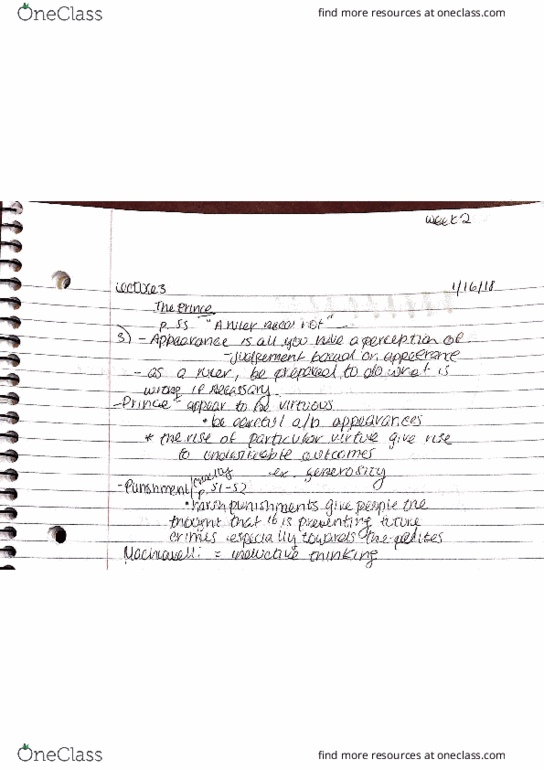 OneClass
find more resources at oneclass.com
week 2
Lecture 3
1/16/18
The Prince
p. 55 "A ruler need not"
3) - Appearance is all you have a perception of
- judgement based on appearance
- as a ruler, be prepared to do what is
wrong if necessary
- Prince - appear to be virtuous
• be careful a/b appearances
* the rise of particular virtue give rise
to undesirable outcomes
ex. generosity
- Punishment/cruelty
p. 51-52
• harsh punishments give people the
thought that it is preventing future
crimes especially towards the
Machiavelli = inductive thinking
OneClass
find more resources at oneclass.com